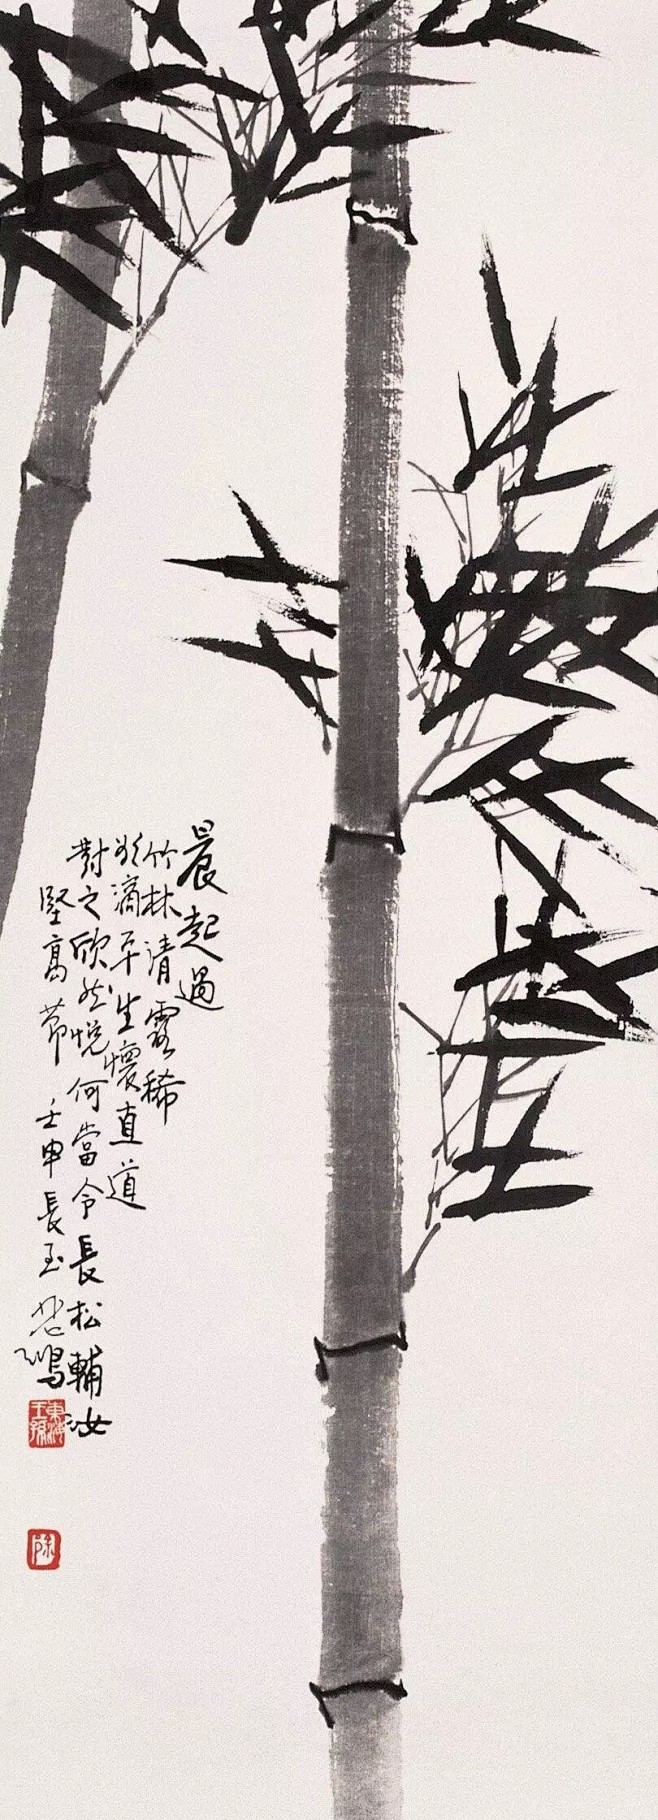 晨起過
竹林清露稀
欲滴平生懷直道
對之欣然悅何當令長松輔汝
堅高節 壬申長至 悲鴻
東海王孫
徐